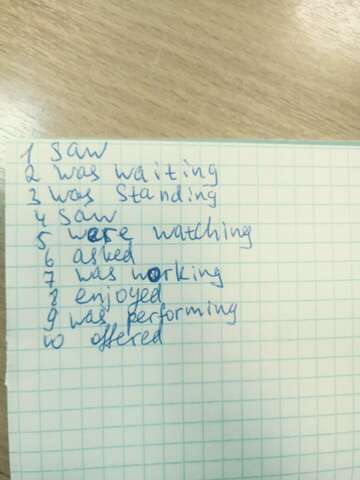 1 saw
2 was waiting
3 was standing
4 saw
5 were watching
6 asked
7 was working
8 enjoyed
9 was performing
10 offered